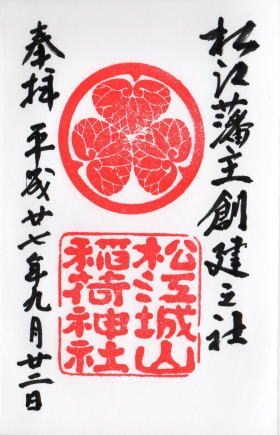 松江藩主創建之社
松江城山
稲荷神社
奉拝 平成廿七年九月廿二日